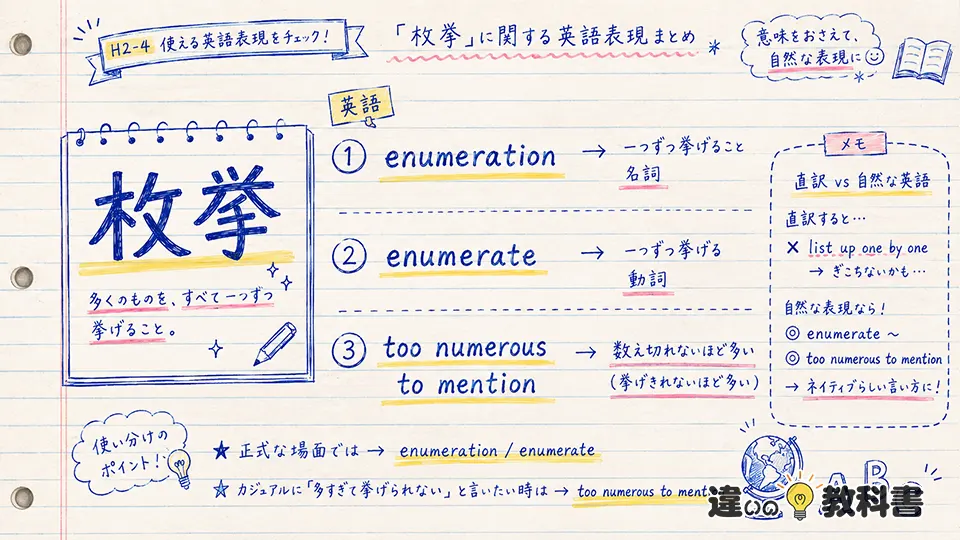 H2-4 使える英語表現をチェック!
「枚挙」に関する英語表現まとめ
意味をおさえて、
自然な表現に
英語
枚挙
多くのものを、すべて一つずつ
挙げること。
① enumeration → 一つずつ挙げること
名詞
② enumerate → 一つずつ挙げる
動詞
③ too numerous
to mention
→ 数え切れないほど多い
(挙げきれないほど多い)
メモ
直訳 vs 自然な英語
直訳すると…
× list up one by one
→ ぎこちないかも…
自然な表現なら!
◎ enumerate ~
◎ too numerous to mention
→ ネイティブらしい言い方に!
使い分けの
ポイント!
★ 正式な場面では → enumeration / enumerate
☆ カジュアルに「多すぎて挙げられない」と言いたい時は → too numerous to ment
A B
違いの教科書